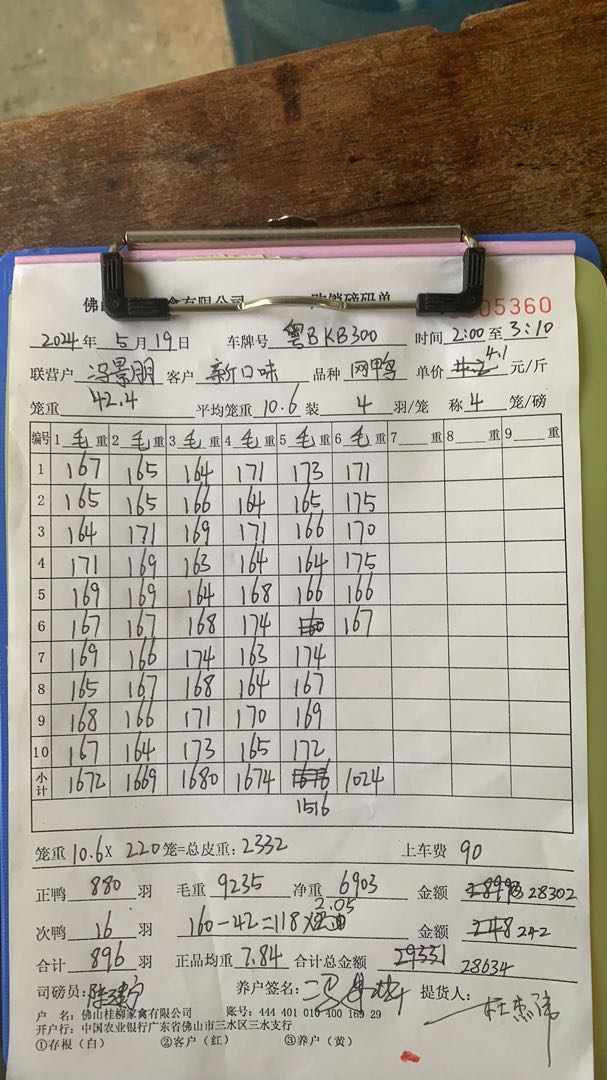 佛山 家禽有限公司 购销磅码单 05360
2024年 5月19日 车牌号 粤BKB300 时间 2:00 至 3:10
联营户 冯景朋 客户 新口味 品种 网鸭 单价 4.2 4.1 元/斤
笼重 42.4 平均笼重 10.6 装 4 羽/笼 称 4 笼/磅
编号 1 毛 重 2 毛 重 3 毛 重 4 毛 重 5 毛 重 6 毛 重 7 重 8 重 9 重
1 167 165 164 171 173 171
2 165 165 166 164 165 175
3 164 171 169 171 166 170
4 171 169 163 164 164 175
5 169 169 164 168 166 166
6 167 167 168 174 167
7 169 166 174 163 174
8 165 167 168 164 167
9 168 166 171 170 169
10 167 164 173 165 172
小计 1672 1669 1680 1674 1024
1516
笼重 10.6 X 220 笼=总皮重: 2332 上车费 90
正鸭 880 羽 毛重 9235 净重 6903 金额 28302
次鸭 16 羽 160-42=118X 2.05 金额 248 242
合计 896 羽 正品均重 7.84 合计总金额 29331 28634
司磅员: 养户签名: 提货人:
户 名: 佛山桂柳家禽有限公司 账号: 444 401 010 400 169 29
开户行: 中国农业银行广东省佛山市三水区三水支行
①存根(白) ②客户(红) ③养户(黄)